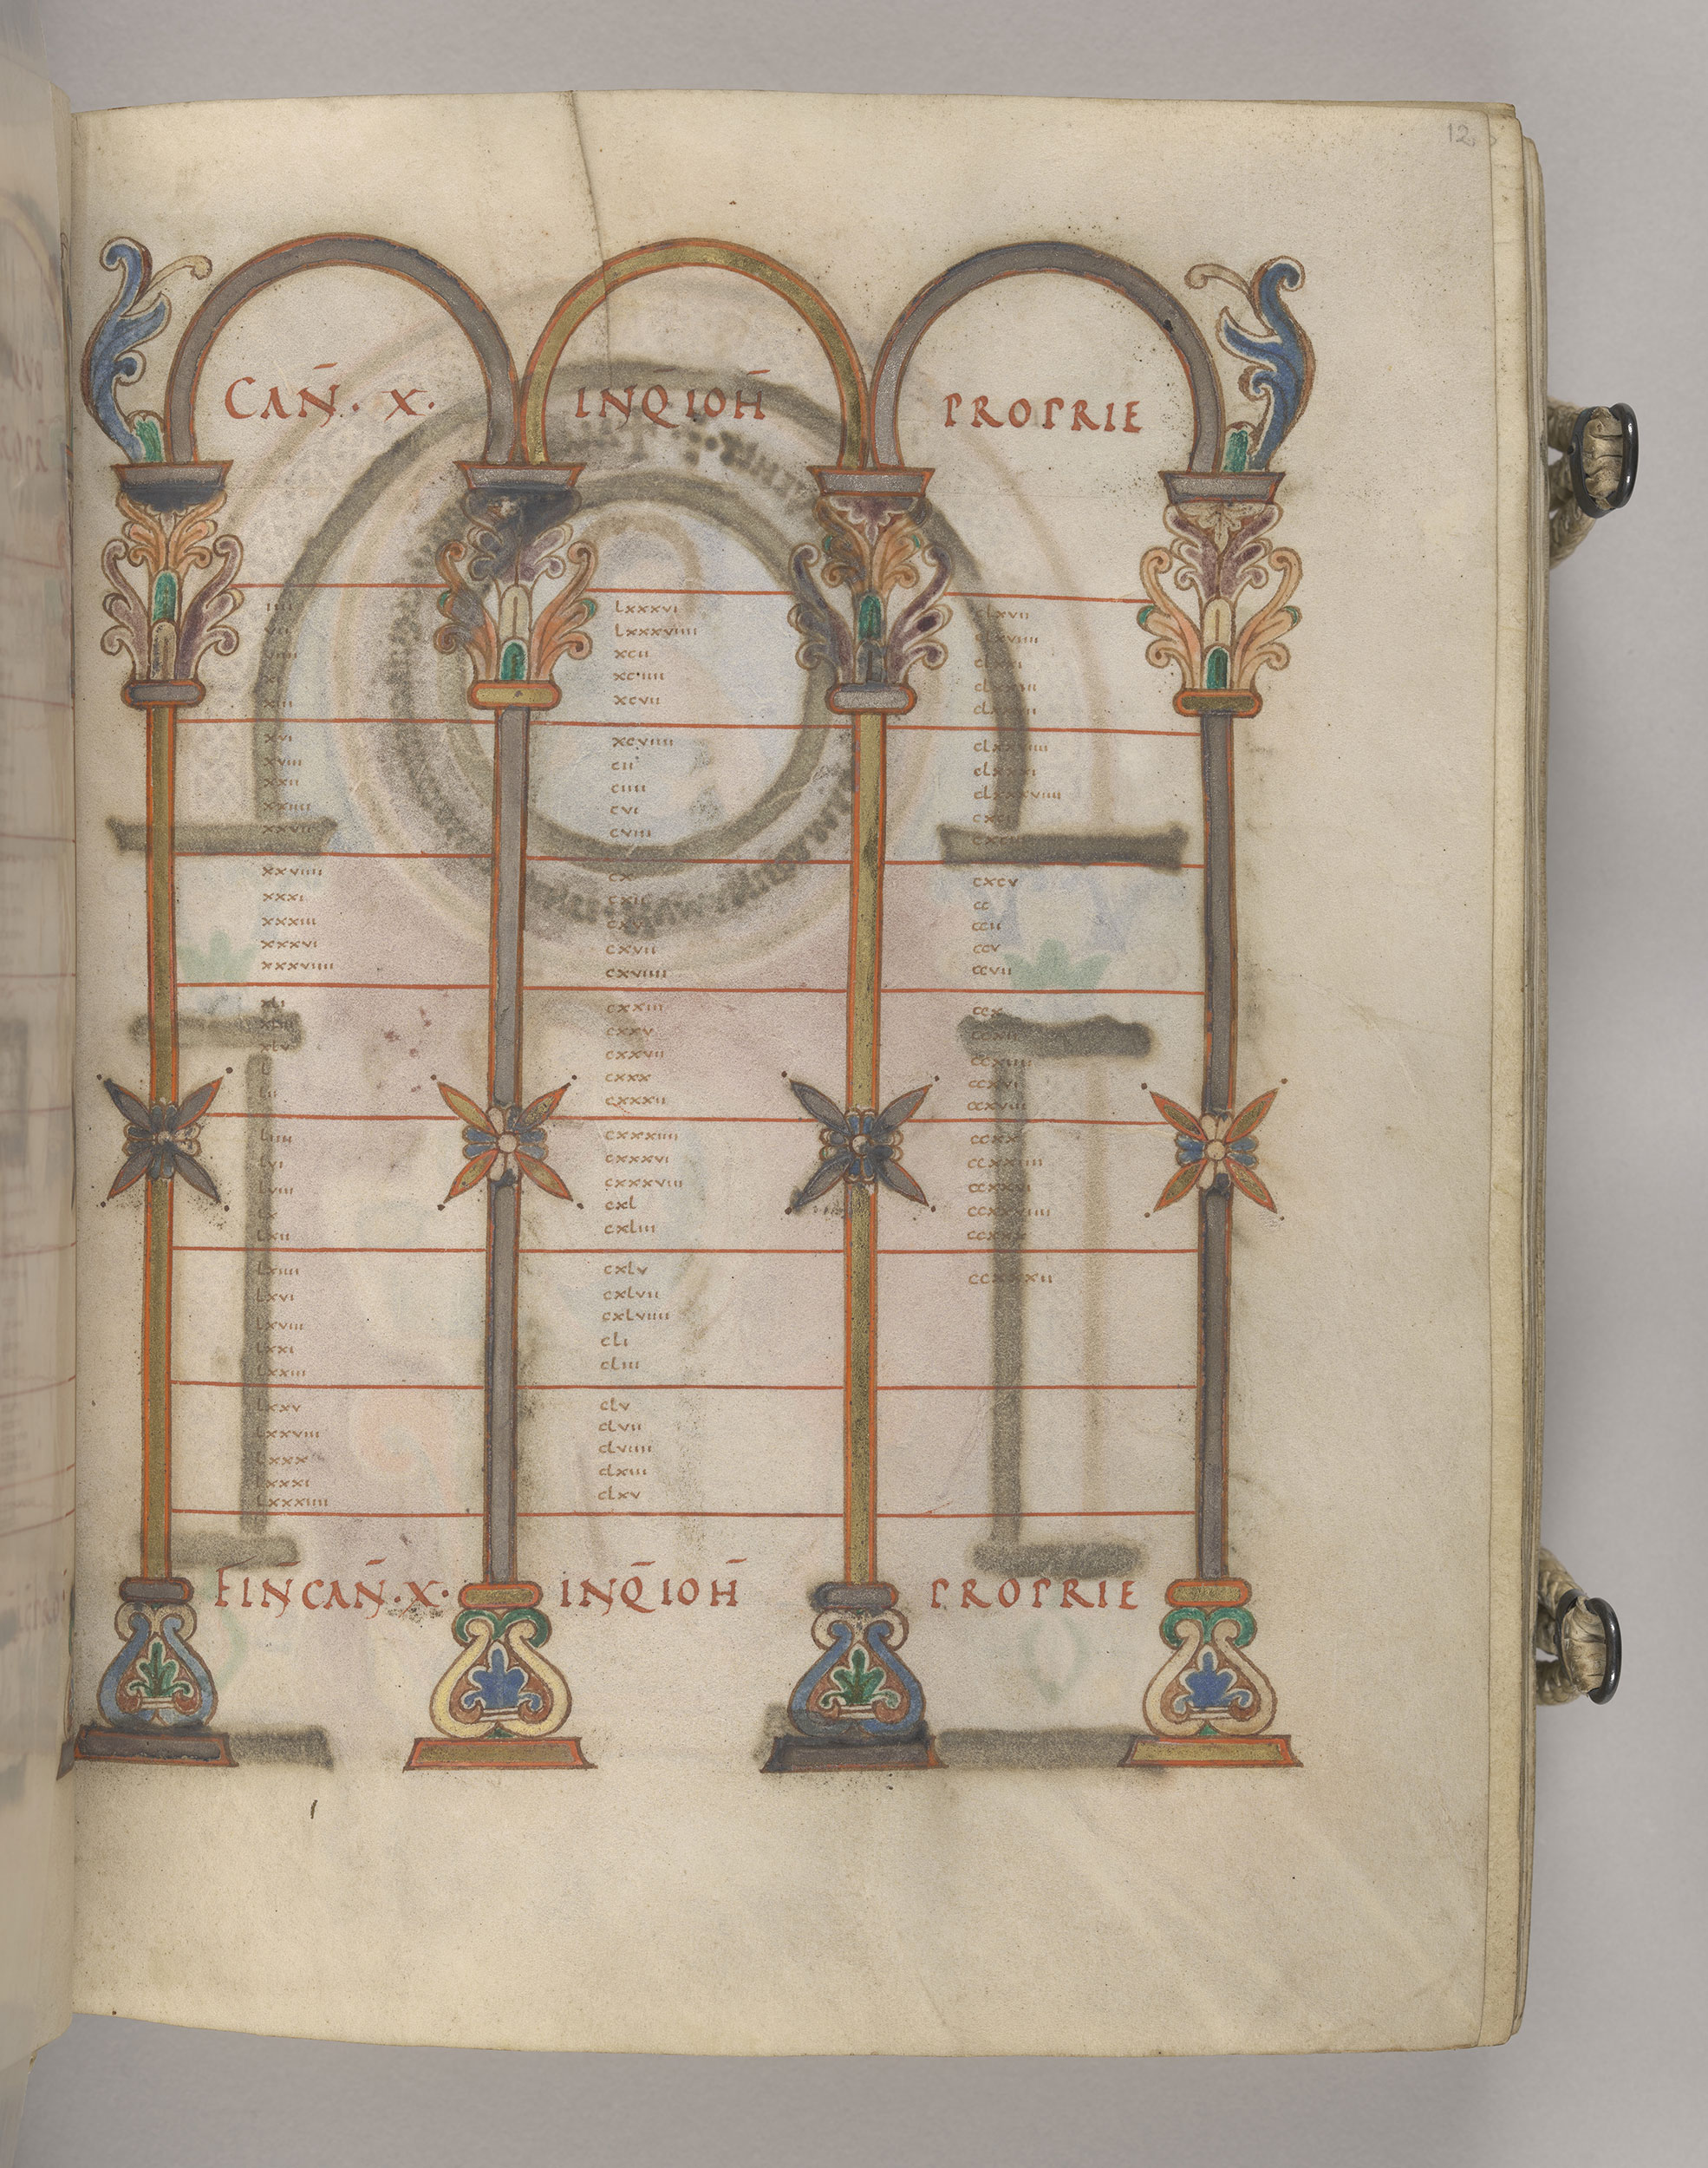 12
CAN̄. X.
INQ̄IOH̄
PROPRIE
IIII
VII
VIIII
XI
XIII
XVI
XVIII
XXII
XXIIII
XXVII
XXVIIII
XXXI
XXXIII
XXXVI
XXXVIIII
XLI
XLIII
XLV
L
LII
LIIII
LVI
LVIII
LX
LXII
LXIIII
LXVI
LXVIII
LXXI
LXXIII
LXXV
LXXVIII
LXXX
LXXXI
LXXXIIII
LXXXVI
LXXXVIIII
XCII
XCIIII
XCVII
XCVIIII
CII
CIIII
CVI
CVIII
CX
CXII
CXVII
CXVIIII
CXXIII
CXXV
CXXVII
CXXX
CXXXII
CXXXIIII
CXXXVI
CXXXVIII
CXL
CXLIII
CXLV
CXLVII
CXLVIIII
CLI
CLIII
CLV
CLVII
CLVIIII
CLXIII
CLXV
CLXVII
CLXVIIII
CLXXI
CLXXVIIII
CLXXXI
CLXXXVIIII
CXCI
CXCV
CC
CCII
CCV
CCVII
CCX
CCXII
CCXIIII
CCXVI
CCXVIII
CCXX
CCXXIIII
CCXXVI
CCXXVIIII
CCXXX
CCXXXII
FIN̄CAN̄.X.
INQ̄IOH̄
PROPRIE